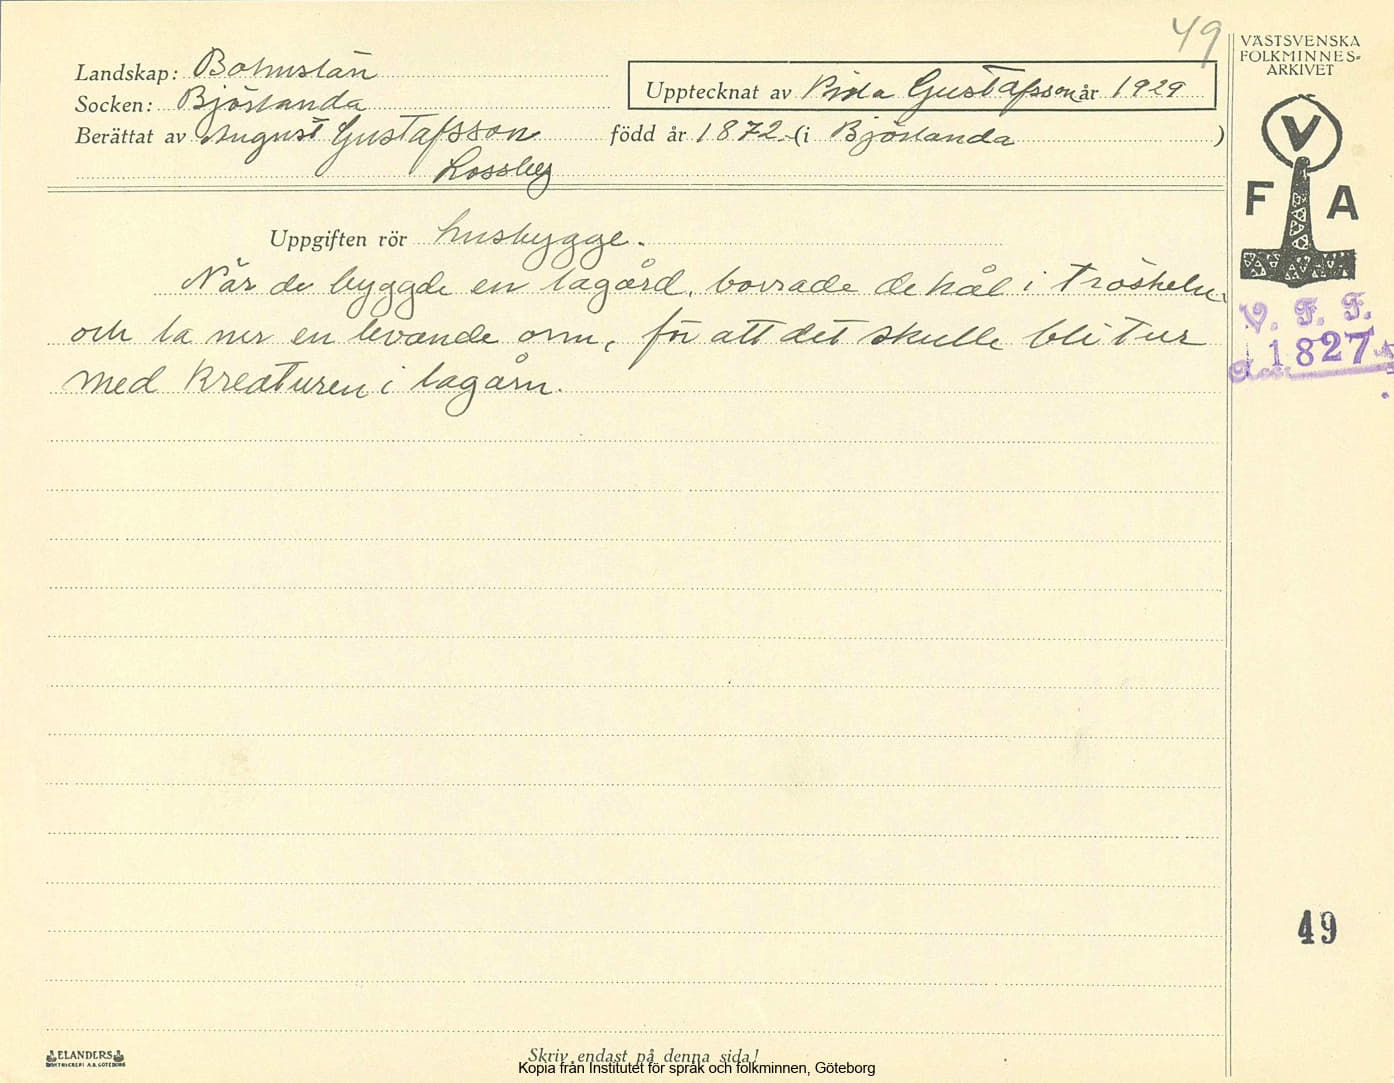 49
VÄSTSVENSKA
FOLKMINNES-
ARKIVET
Landskap: Bohuslän
Upptecknat av Frida Gustafsson år 1929
Socken: Björlanda
Berättat av August Gustafsson född år 1872 (i Björlanda)
Lossby
V
F A
Uppgiften rör husbygge.
När de byggde en lagård, borrade de hål i tröskeln
och la ner en levande orm, för att det skulle bli tur
med kreaturen i lagårn.
V. F. F.
1827
49
ELANDERS
BOKTRYCKERI A.B. GÖTEBORG
Skriv endast på denna sida!
Kopia från Institutet för språk och folkminnen, Göteborg